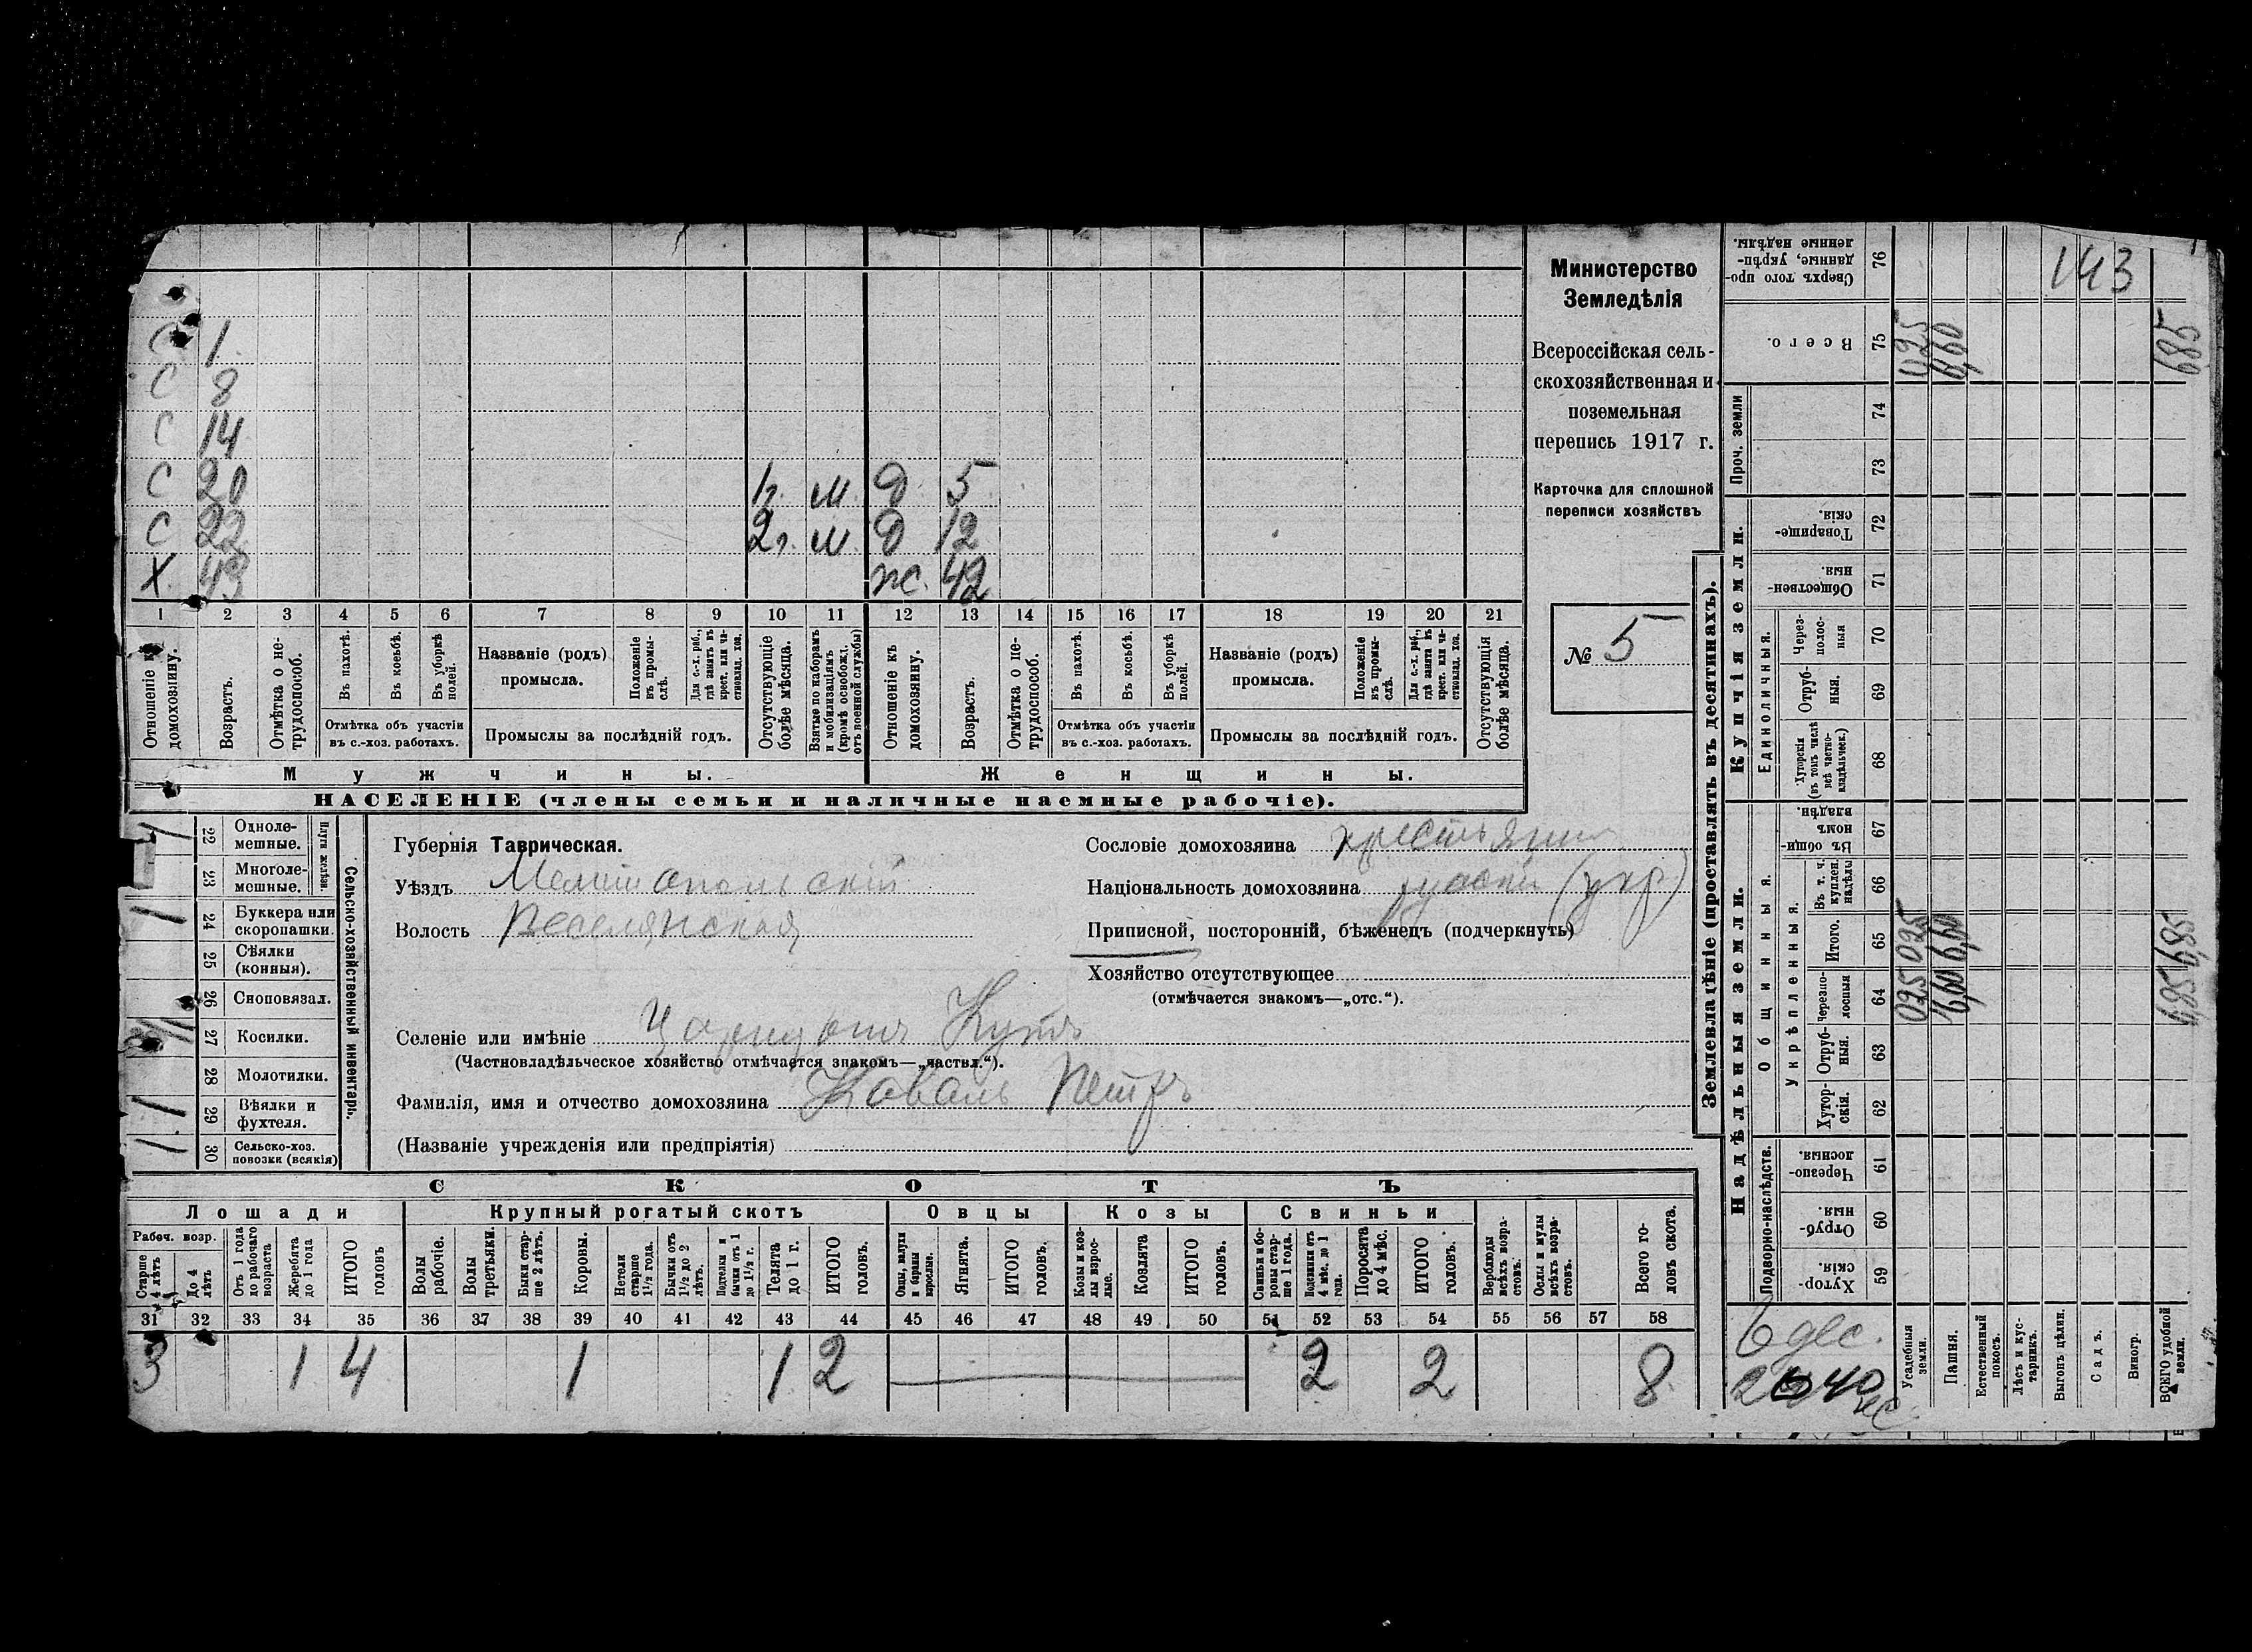 С 1
С 8
С 14
С 20 1г. м. д. 5
С 22 2г. м. д 12
Х 43 ж. 42
1 2 3 4 5 6 7 8 9 10 11 12 13 14 15 16 17 18 19 20 21
Отношеніе къ домохозяину.
Возрастъ.
Отмѣтка о не-
трудоспособ.
Въ пахотѣ.
Въ косьбѣ.
Въ уборкѣ
полей.
Отмѣтка объ участіи
въ с.-хоз. работахъ.
Названіе (родъ)
промысла.
Положеніе
въ промы-
слѣ.
Для с.-х. раб.,
гдѣ занятъ въ
крест. или ча-
стновлад. хоз.
Промыслы за послѣдній годъ.
Отсутствующіе
болѣе мѣсяца.
Взятые по наборамъ
и мобилизаціямъ
(кромѣ освобожд.
отъ военной службы)
Отношеніе къ
домохозяину.
Возрастъ.
Отмѣтка о не-
трудоспособ.
Въ пахотѣ.
Въ косьбѣ.
Въ уборкѣ
полей.
Отмѣтка объ участіи
въ с.-хоз. работахъ.
Названіе (родъ)
промысла.
Положеніе
въ промы-
слѣ.
Для с.-х. раб.,
гдѣ занята въ
крест. или ча-
стновлад. хоз.
Промыслы за послѣдній годъ.
Отсутствующія
болѣе мѣсяца.
Мужчины.
Женщины.
НАСЕЛЕНІЕ (члены семьи и наличные наемные рабочіе).
Министерство
Земледѣлія
Всероссійская сель-
скохозяйственная и
поземельная
перепись 1917 г.
Карточка для сплошной
переписи хозяйствъ
№ 5
22 Одноле-
мешные.
23 Многоле-
мешные.
Плуги желѣзн.
1 24 Буккера или
скоропашки.
25 Сѣялки
(конныя).
26 Сноповязал.
27 Косилки.
28 Молотилки.
1 29 Вѣялки и
фухтеля.
1 30 Сельско-хоз.
повозки (всякія)
Сельско-хозяйственный инвентарь.
Губернія Таврическая.
Уѣздъ Мелитопольскій
Волость Веселянская
Сословіе домохозяина крестьянин
Національность домохозяина русскій (укр)
Приписной, посторонній, бѣженецъ (подчеркнуть)
Хозяйство отсутствующее
(отмѣчается знакомъ—„отс.“).
Селеніе или имѣніе Царицын Кутъ
(Частновладѣльческое хозяйство отмѣчается знакомъ—„частвл.“).
Фамилія, имя и отчество домохозяина Коваль Петръ
(Названіе учрежденія или предпріятія)
СКОТЪ
Лошади
Крупный рогатый скотъ
Овцы
Козы
Свиньи
Рабоч. возр.
Старше
4 лѣтъ
До 4
лѣтъ
Отъ 1 года
до рабочаго
возраста
Жеребята
до 1 года
ИТОГО
головъ
Волы
рабочіе.
Волы
третьяки.
Быки стар-
ше 2 лѣтъ.
Коровы.
Нетели
старше
1½ года.
Бычки отъ
1½ до 2
лѣтъ.
Подтелки и
бычки отъ 1
до 1½ г.
Телята
до 1 г.
ИТОГО
головъ.
Овцы, валухи
и бараны
взрослые.
Ягнята.
ИТОГО
головъ.
Козы и коз-
лы взрос-
лые.
Козлята
ИТОГО
головъ.
Свиньи и бо-
ровы стар-
ше 1 года.
Подсвинки отъ
4 мѣс. до 1
года.
Поросята
до 4 мѣс.
ИТОГО
головъ.
Верблюды
всѣхъ возра-
стовъ.
Ослы и мулы
всѣхъ возра-
стовъ.
Всего го-
ловъ скота.
31 32 33 34 35 36 37 38 39 40 41 42 43 44 45 46 47 48 49 50 51 52 53 54 55 56 57 58
3 1 4 1 1 2 2 2 8
Землевладѣніе (проставлять въ десятинахъ).
Надѣльныя земли.
Купчія земли.
Проч. земли
Подворно-наслѣдств.
Общинныя.
Укрѣпленныя.
Единоличныя.
76 Сверхъ того про-
данные, укрѣп-
ленные надѣлы.
143
75 Всего.
0,25
6,60
6,85
74
73
72 Товарище-
скія.
71 Обществен-
ныя.
70 Через-
полос-
ныя
69 Отруб-
ныя.
68 Хуторскія
(въ томъ числѣ
всѣ частно-
владѣльческ.)
67 Въ общи-
номъ
владѣн.
66 Въ т. ч.
куплен.
надѣлы
65 Итого.
0,25
6,60
6,85
64 Черезпо-
лосныя
0,25
6,60
6,85
63 Отруб-
ныя.
62 Хутор-
скія.
61 Черезпо-
лосныя.
60 Отруб-
ныя.
59 Хутор-
скія.
6 дес.
Усадебныя
земли.
Пашня.
Естественный
покосъ.
Лѣсъ и кус-
тарникъ.
Выгонъ цѣлин.
Садъ.
Виногр.
ВСЕГО удобной
земли.